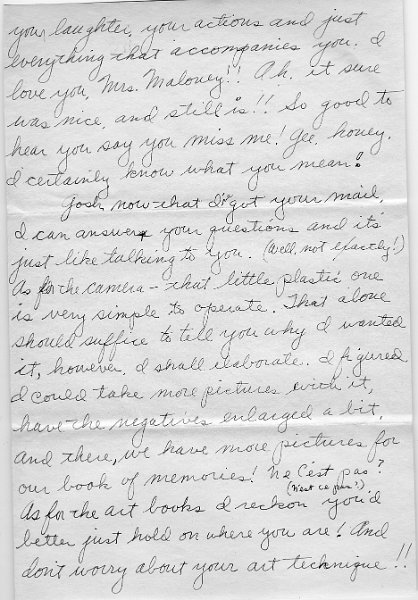 your laughter, your actions and just
everything that accompanies you. I
love you, Mrs. Maloney!! Ah, it sure
was nice, and still is!! So good to
hear you say you miss me! Gee, honey,
I certainly know what you mean!
Gosh, now that I've got your mail,
I can answer your questions and it's
just like talking to you. (Well, not exactly!)
As for the camera - that little plastic one
is very simple to operate. That alone
should suffice to tell you why I wanted
it, however, I shall elaborate. I figured
I could take more pictures with it,
have the negatives enlarged a bit,
and there, we have more pictures for
our book of memories! Ne C'est pas?
(N'est ce pas?)
As for the art books I reckon you'd
better just hold on where you are! And
don't worry about your art technique!!